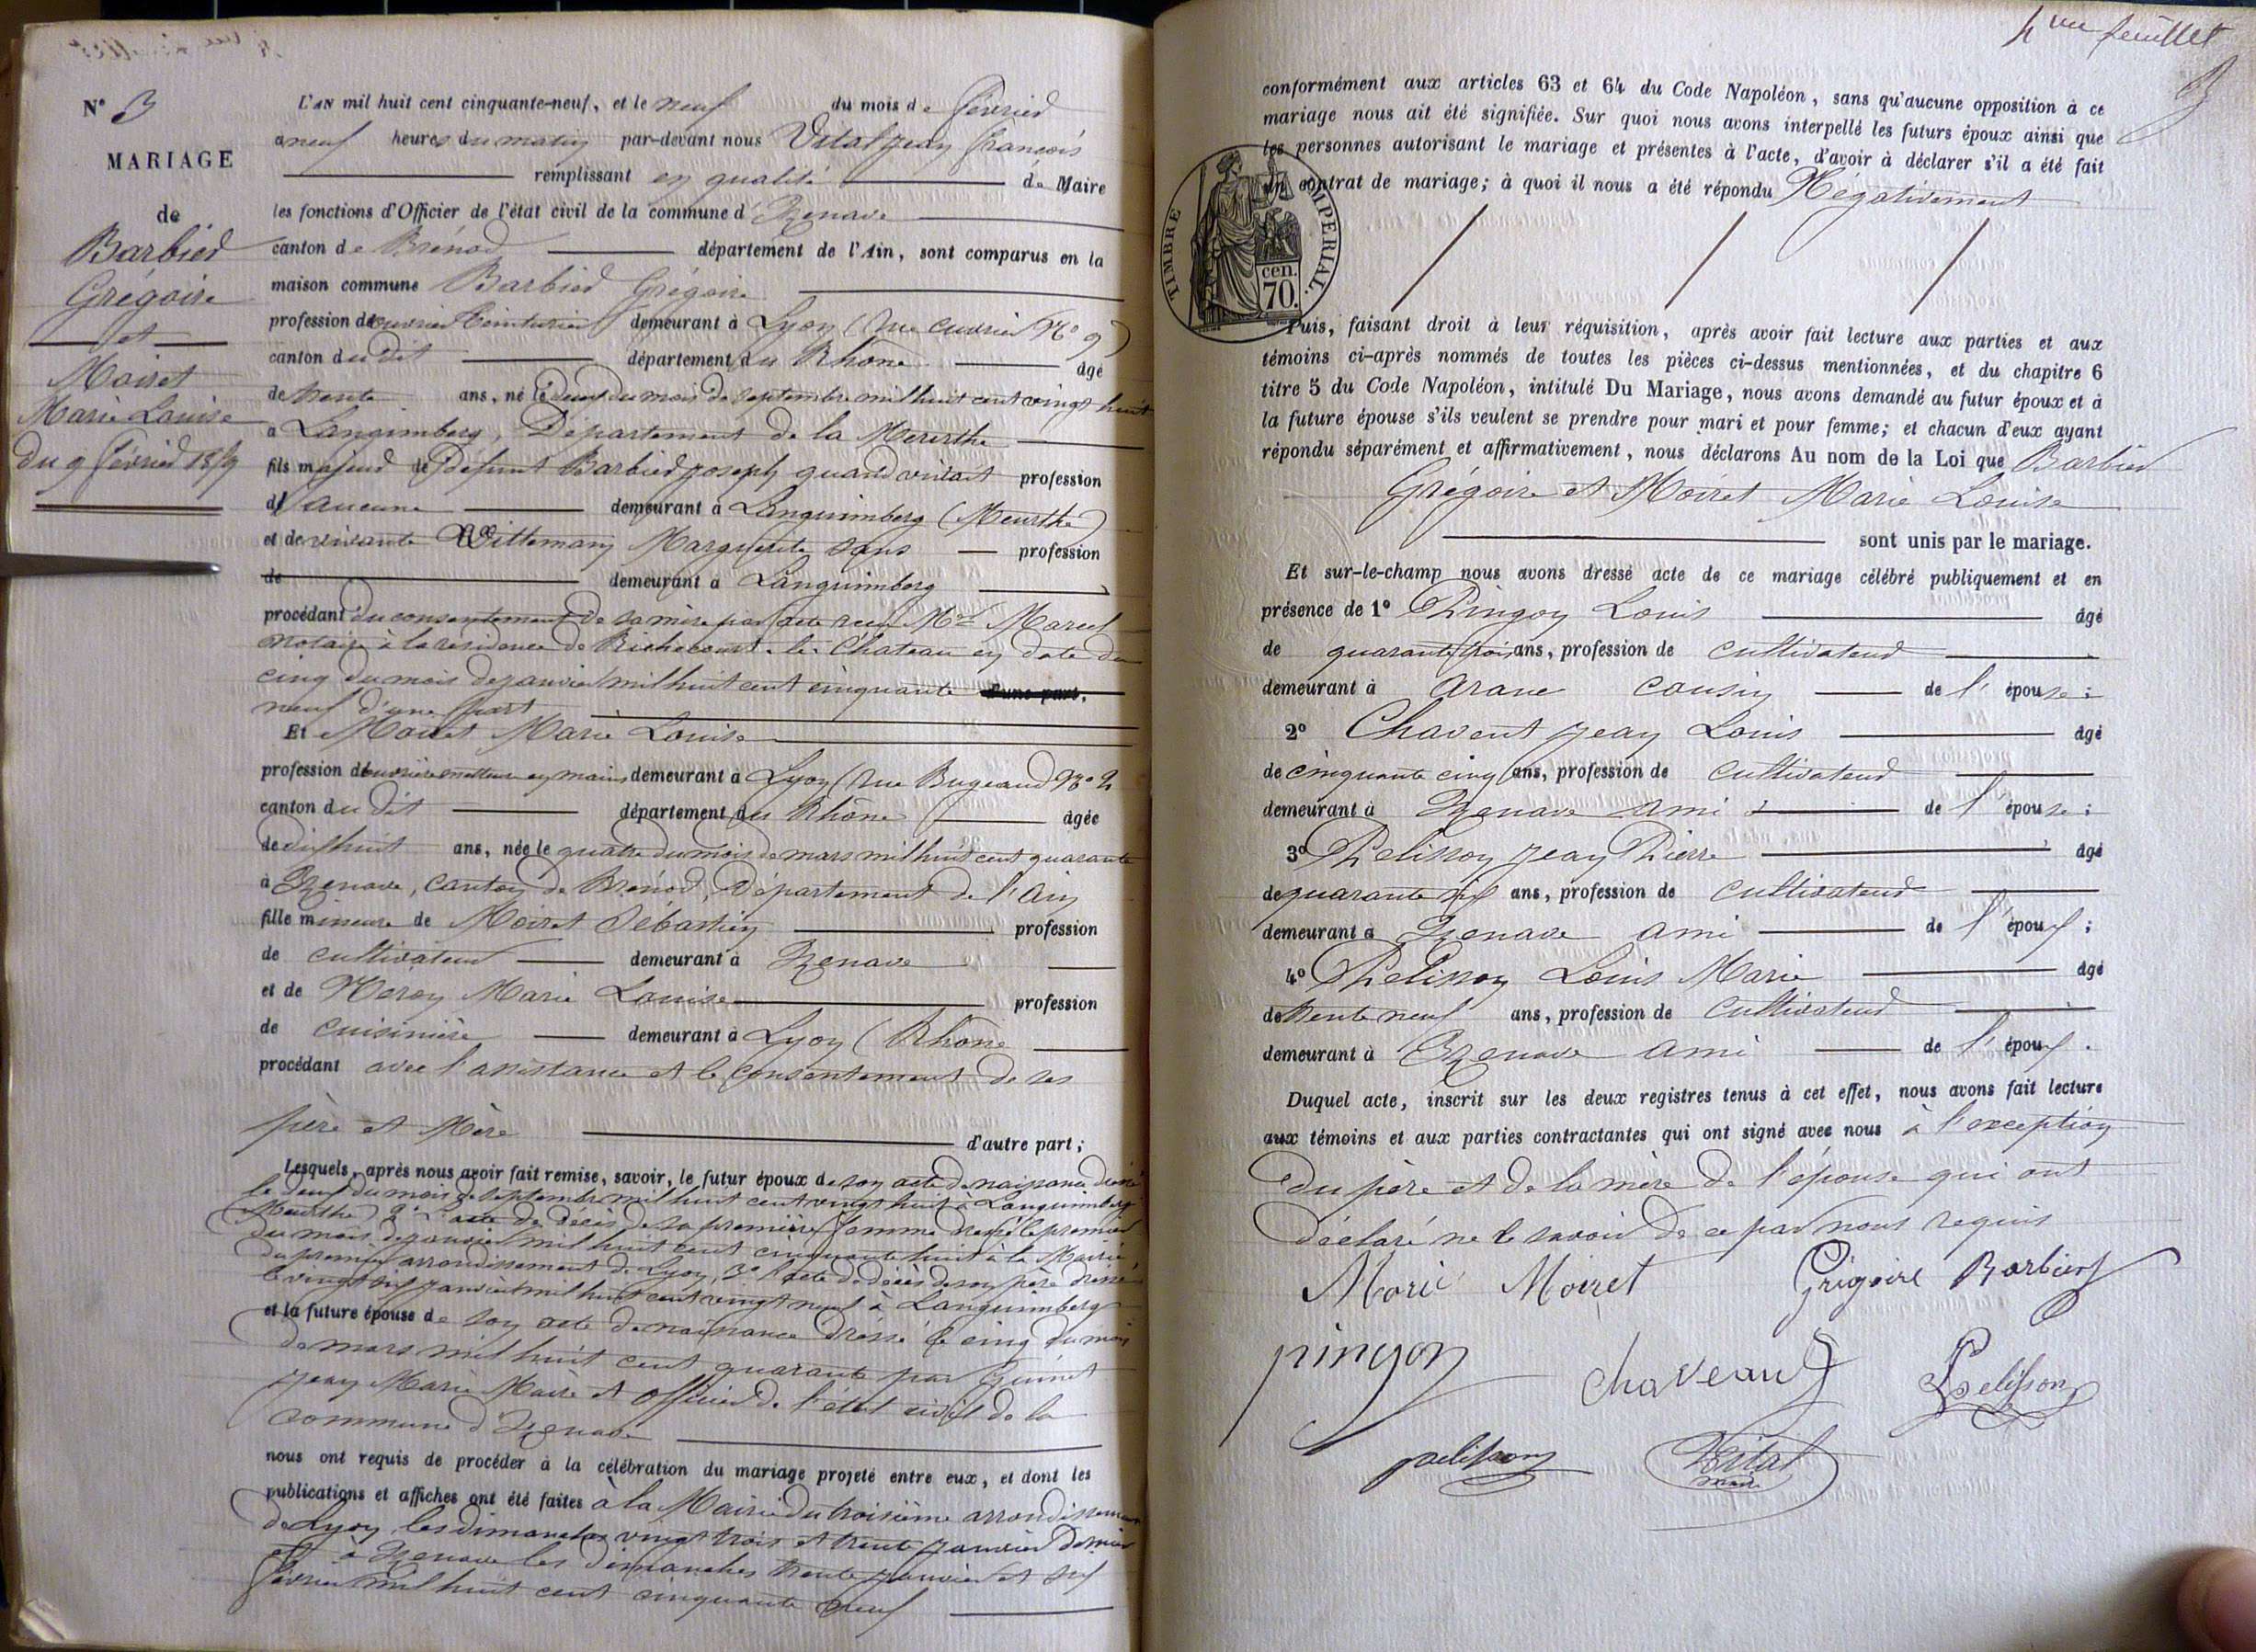 N° 3
MARIAGE
de
Barbier
Grégoire
et
Moiret
Marie Louise
du 9 février 1859
L'AN mil huit cent cinquante-neuf, et le neuf du mois de février
a neuf heures du matin par-devant nous Vital jean françois
remplissant en qualité de Maire
les fonctions d'Officier de l'état civil de la commune d'Izenave
canton de Brénod département de l'Ain, sont comparus en la
maison commune Barbier Grégoire
profession de ouvrier teinturier demeurant à Lyon (rue cuvier N° 9)
canton du dit département du Rhône âgé
de trente ans, né le deux du mois de septembre mil huit cent vingt huit
à Languimberg, Département de la Meurthe
fils majeur de Défunt Barbier joseph quand vivait profession
d'aucune demeurant à Languimberg (Meurthe)
et de vivante Wittemann Marguerite sans profession
de demeurant à Languimberg
procédant du consentement de sa mère par acte reçu Me Marcel
notaire à la résidence de Richecourt-le-Château en date du
cinq du mois de janvier mil huit cent cinquante d'une part,
neuf d'une part
Et Moiret Marie Louise
profession de ouvrière metteur en mains demeurant à Lyon (rue Bugeaud N° 2
canton du dit département du Rhône âgée
de dix huit ans, née le quatre du mois de mars mil huit cent quarante
à Izenave, canton de Brénod, Département de l'Ain
fille mineure de Moiret Sébastien profession
de cultivateur demeurant à Izenave
et de Néroy Marie Louise profession
de cuisinière demeurant à Lyon (Rhône
procédant avec l'assistance et le consentement de ses
père et Mère d'autre part;
Lesquels, après nous avoir fait remise, savoir, le futur époux de son acte de naissance dressé
le deux du mois de septembre mil huit cent vingt huit à Languimberg
(Meurthe) 2° L'acte de décès de sa première femme dressé le premier
du mois de janvier mil huit cent cinquante huit à la Mairie
du premier arrondissement de Lyon, 3° l'acte de décès de son père dressé
le vingt six janvier mil huit cent vingt neuf à Languimberg
et la future épouse de son acte de naissance dressé le cinq du mois
de mars mil huit cent quarante par Guinet
jean Marie Maire et officier de l'état civil de la
commune d'Izenave
nous ont requis de procéder à la célébration du mariage projeté entre eux, et dont les
publications et affiches ont été faites à la Mairie du troisième arrondissement
de Lyon, les dimanches vingt trois et trente janvier dernier
et à Izenave les dimanches trente janvier et six
février mil huit cent cinquante neuf
4me feuillet
conformément aux articles 63 et 64 du Code Napoléon, sans qu'aucune opposition à ce
mariage nous ait été signifiée. Sur quoi nous avons interpellé les futurs époux ainsi que
les personnes autorisant le mariage et présentes à l'acte, d'avoir à déclarer s'il a été fait
un contrat de mariage; à quoi il nous a été répondu Négativement
TIMBRE IMPERIAL.
cen.
70.
Puis, faisant droit à leur réquisition, après avoir fait lecture aux parties et aux
témoins ci-après nommés de toutes les pièces ci-dessus mentionnées, et du chapitre 6
titre 5 du Code Napoléon, intitulé Du Mariage, nous avons demandé au futur époux et à
la future épouse s'ils veulent se prendre pour mari et pour femme; et chacun d'eux ayant
répondu séparément et affirmativement, nous déclarons Au nom de la Loi que Barbier
Grégoire et Moiret Marie Louise
sont unis par le mariage.
Et sur-le-champ nous avons dressé acte de ce mariage célébré publiquement et en
présence de 1° Pingon Louis âgé
de quarante trois ans, profession de cultivateur
demeurant à arane cousin de l'épouse;
2° Chavent jean Louis âgé
de cinquante cinq ans, profession de cultivateur
demeurant à Izenave ami de l'épouse;
3° Pelisson jean Pierre âgé
de quarante six ans, profession de cultivateur
demeurant à Izenave ami de l'époux;
4° Pelisson Louis Marie âgé
de trente neuf ans, profession de cultivateur
demeurant à Izenave ami de l'époux.
Duquel acte, inscrit sur les deux registres tenus à cet effet, nous avons fait lecture
aux témoins et aux parties contractantes qui ont signé avec nous à l'exception
du père et de la mère de l'épouse qui ont
déclaré ne le savoir de ce par nous requis
Marie Moiret Grégoire Barbier
pingon chaveant Pelisson
pelisson Vital
maire